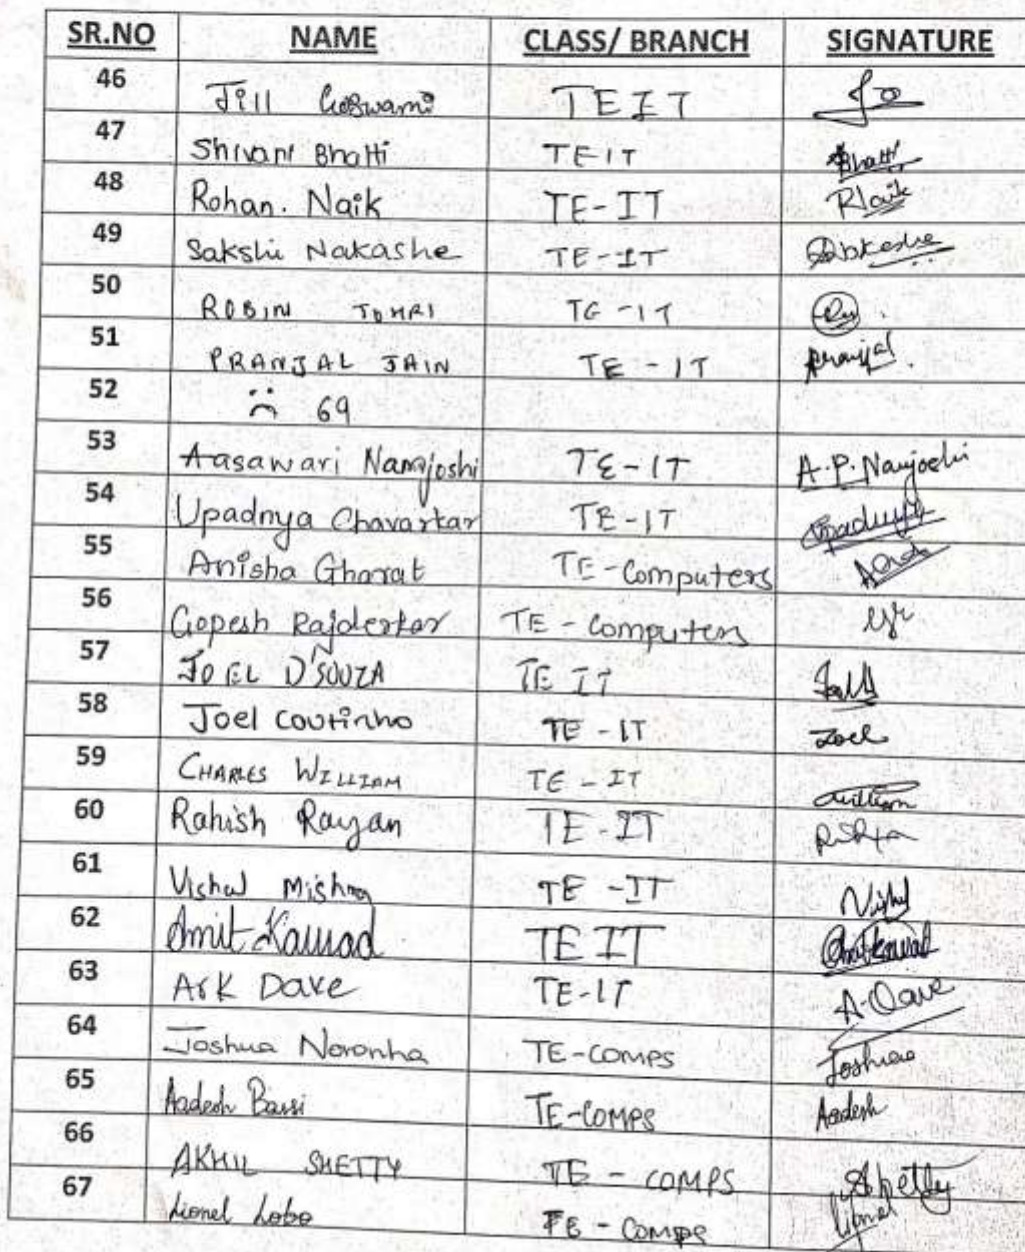 SR.NO NAME CLASS/ BRANCH SIGNATURE
46 Jill Goswami TEIT
47 Shivani Bhatti TE-IT Bhatti
48 Rohan. Naik TE-IT RNaik
49 Sakshi Nakashe TE-IT
50 ROBIN TE-IT
51 PRANJAL JAIN TE-IT Pranjal
52 69
53 Aasawari Namjoshi TE-IT A.P. Namjoshi
54 Upadnya Chavarkar TE-IT Upadnya
55 Anisha Gharat TE-Computers
56 Gopesh Rajderkar TE-Computers
57 JOEL D'SOUZA TE IT
58 Joel Coutinho TE-IT Joel
59 CHARLES WILLIAM TE-IT William
60 Rahish Rayan TE-IT
61 Vishal Mishra TE-IT Vishal
62 Amit Kawad TE IT Amit Kawad
63 Ark Dave TE-IT A-Dave
64 Joshua Noronha TE-COMPS Joshua
65 Aadesh TE-COMPS Aadesh
66 AKHIL SHETTY TE - COMPS Shetty
67 Lionel Lobo TE - Comps Lionel